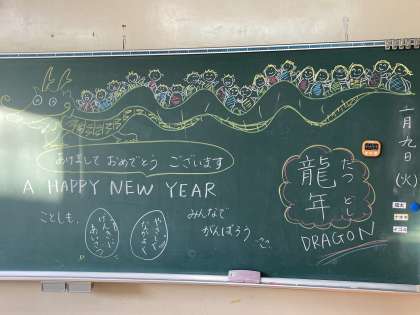 あけまして おめでとう ございます
A HAPPY NEW YEAR
ことしも、
げんきに
あいさつ
やさしく
なかよく
みんなで
がんばろう
たつ どし
龍年
DRAGON
一月九日(火)